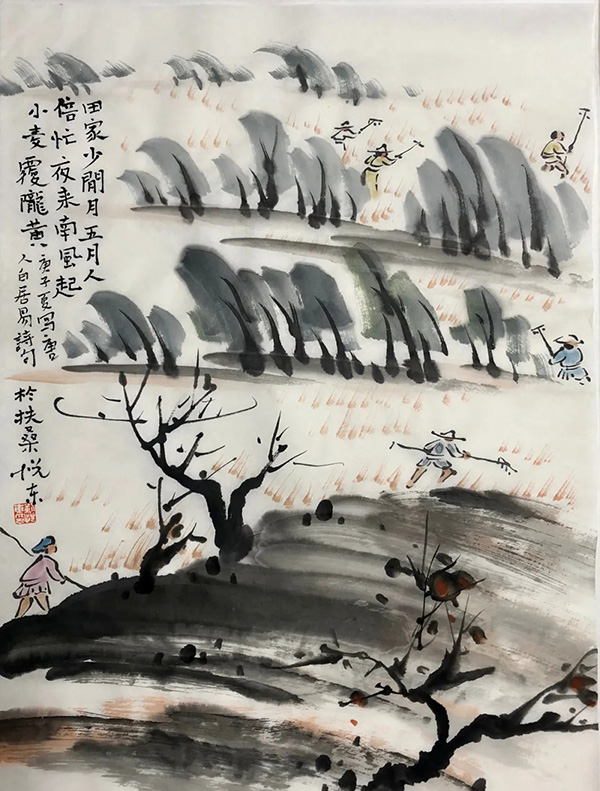 田家少閒月五月人
倍忙夜来南風起
小麦覆隴黄
庚子夏写唐
人白居易詩句
於扶桑悦东